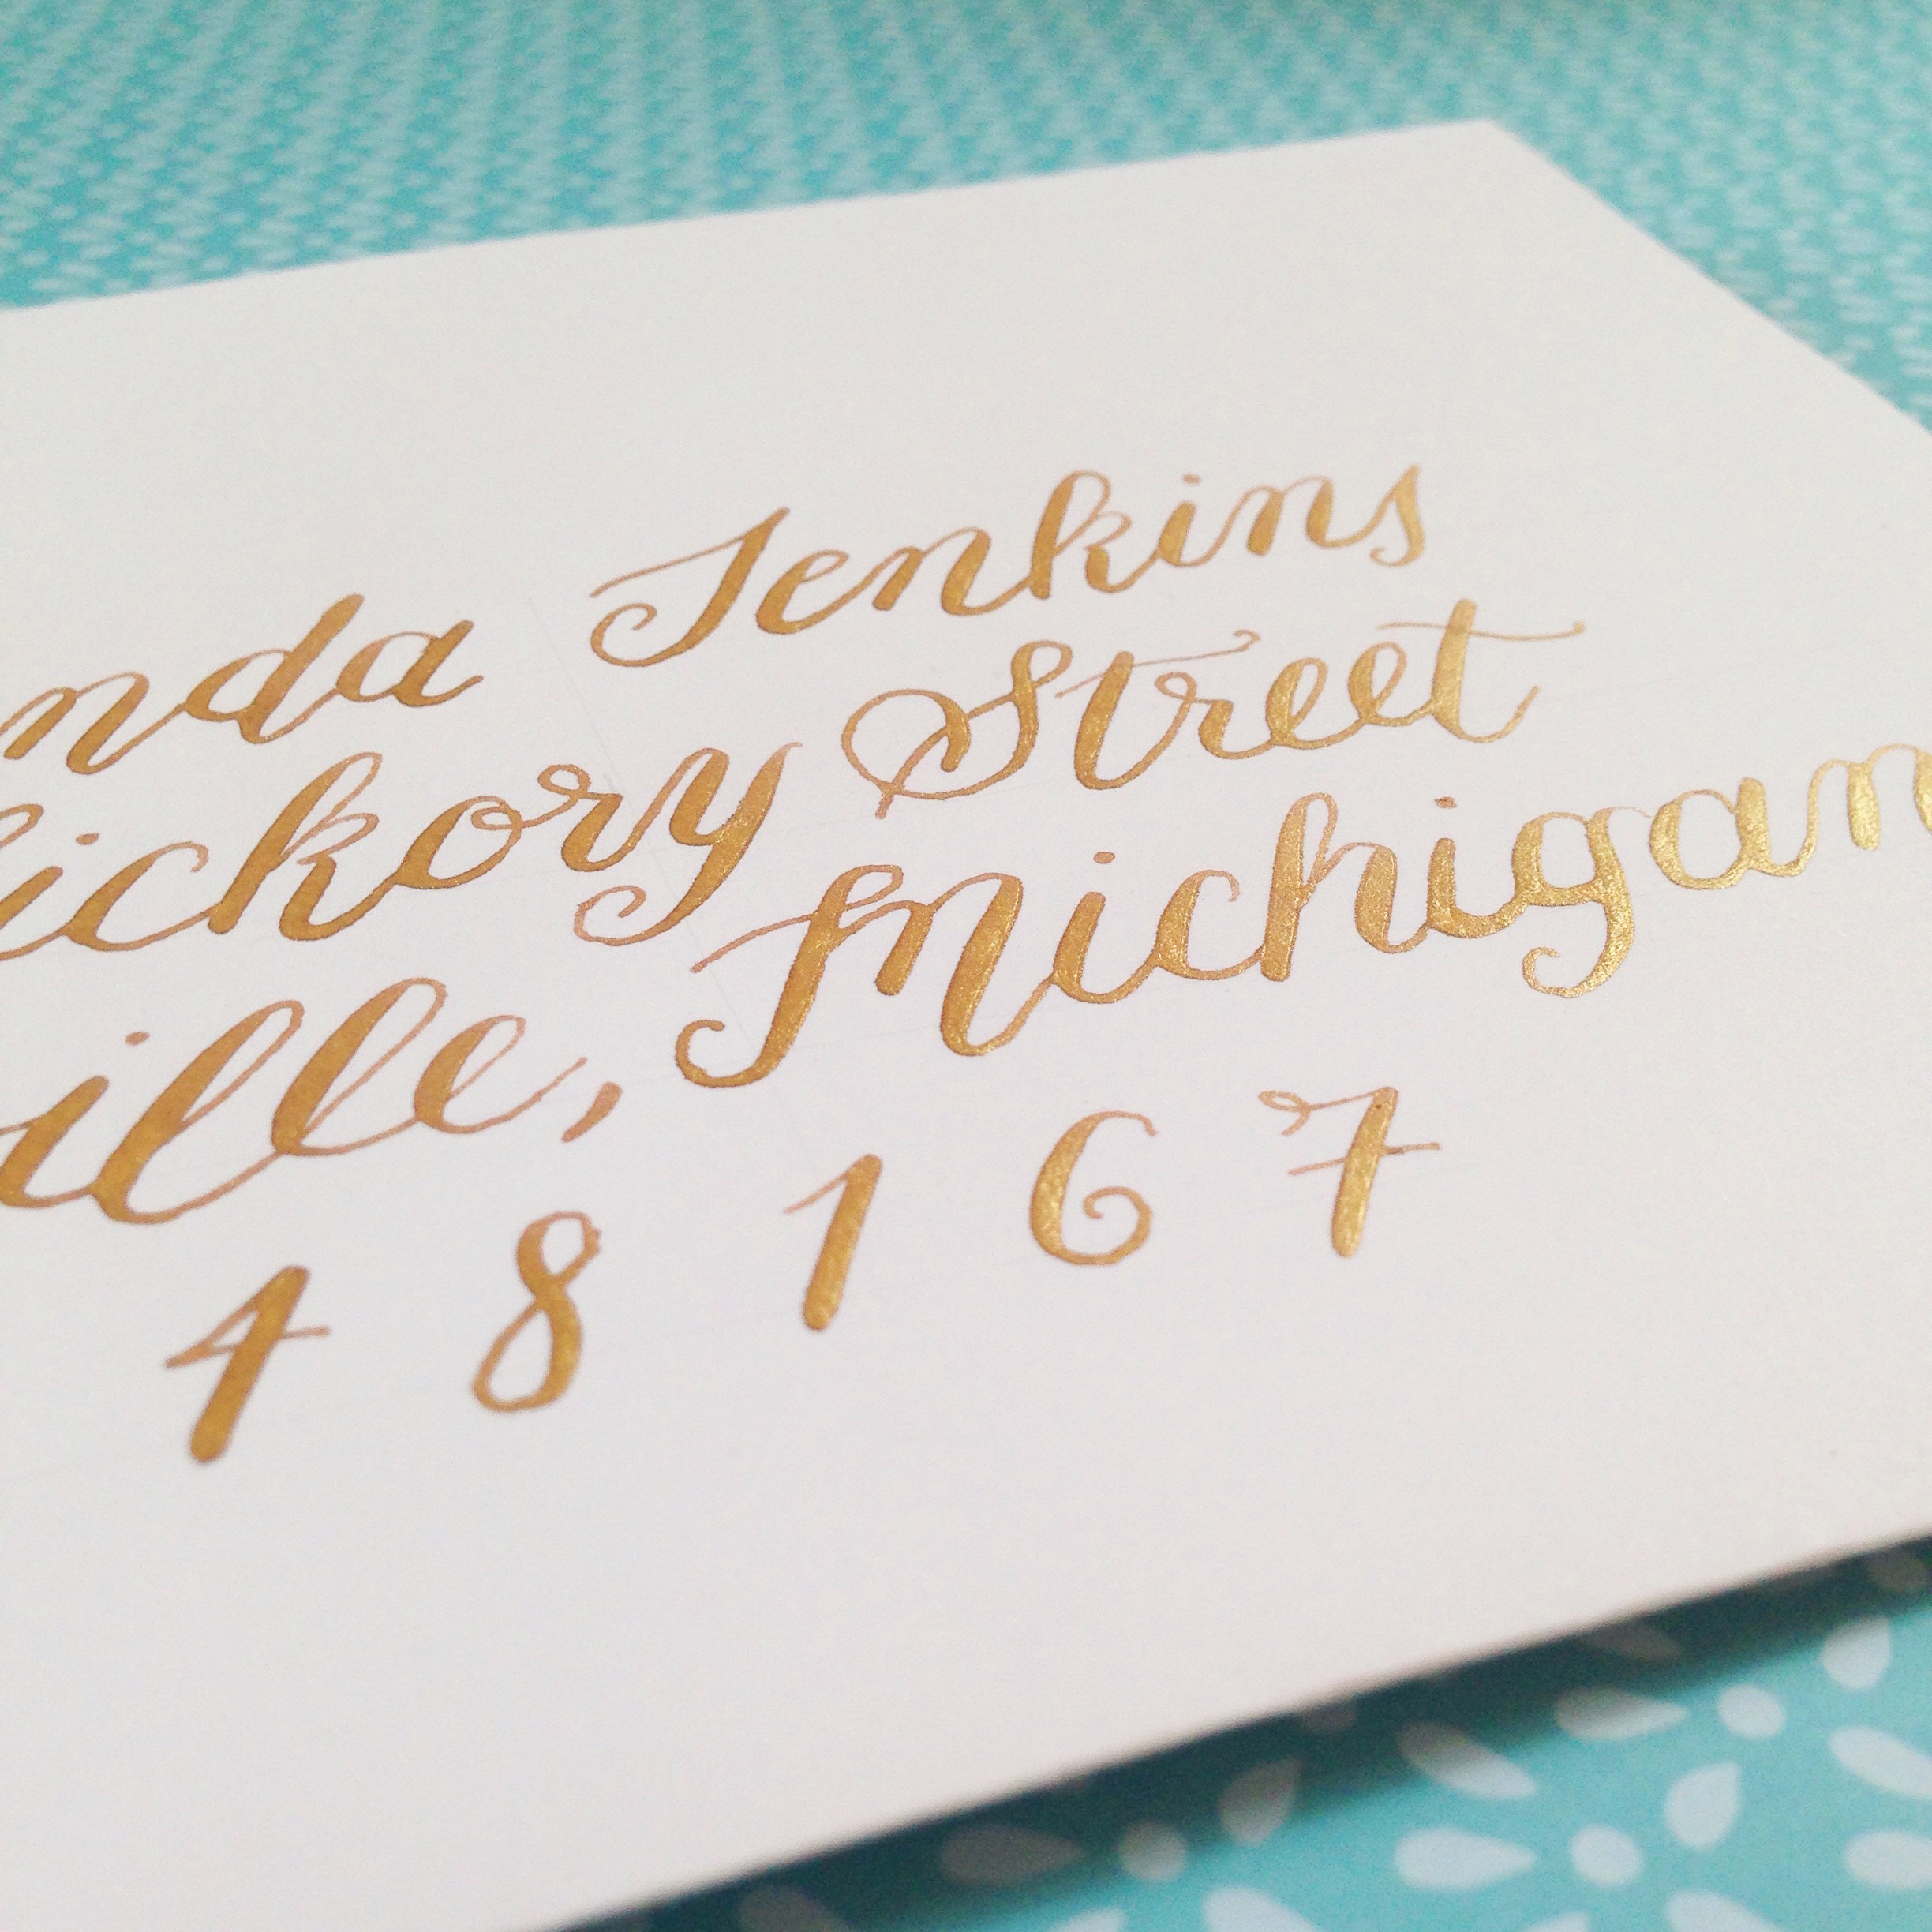 nda Jenkins
ickory Street
ille, Michigan
4 8 1 6 7